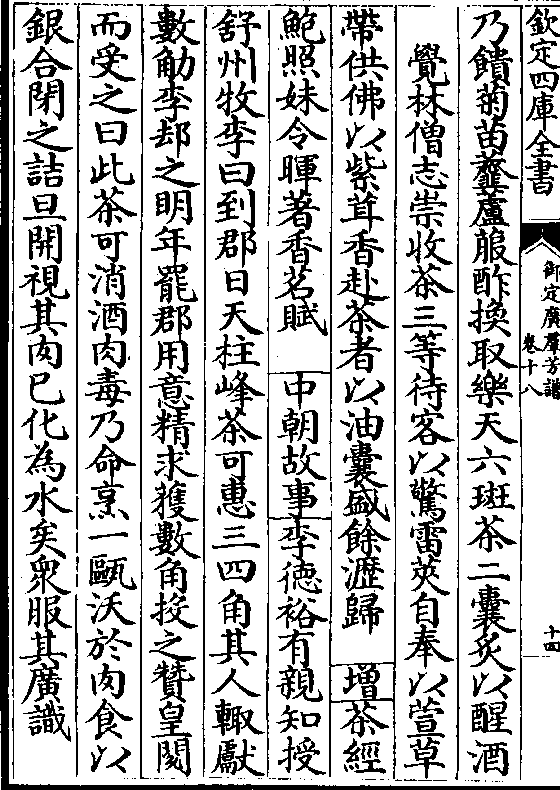 欽定四庫全書
御定廣羣芳譜
卷十八
十四
乃饋菊苗虀蘆菔酢換取樂天六班茶二囊炙以醒酒
覺林僧志崇收茶三等待客以驚雷莢自奉以萱草
帶供佛以紫茸香赴茶者以油囊盛餘瀝歸 增茶經
鮑照妹令暉著香茗賦 中朝故事李徳裕有親知授
舒州牧李曰到郡日天柱峰茶可惠三四角其人輙獻
數觔李却之明年罷郡用意精求獲數角投之贊皇閱
而受之曰此茶可消酒肉毒乃命烹一甌沃於肉食以
銀合閉之詰旦開視其肉已化為水矣衆服其廣識